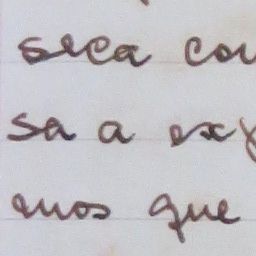 seca cou
sa a ex
enos que